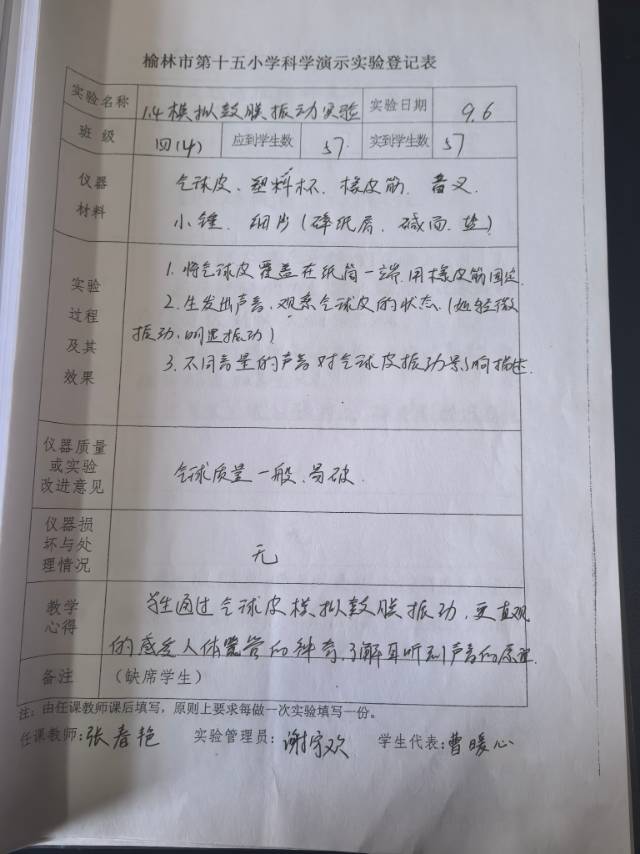 榆林市第十五小学科学演示实验登记表
实验名称 1.4模拟鼓膜振动实验 实验日期 9.6
班 级 四(4) 应到学生数 57 实到学生数 57
仪器 气球皮、塑料杯、橡皮筋、音叉、
材料 小锤、细片(碎纸屑、碱面、盐)
1.将气球皮覆盖在纸筒一端.用橡皮筋固定.
实验 2.生发出声音、观察气球皮的状态.(如轻微
过程 振动、明显振动)
及其 3.不同音量的声音对气球皮振动影响描述.
效果
仪器质量
或实验 气球质量一般、易破.
改进意见
仪器损
坏与处 无
理情况
教学 学生通过气球皮模拟鼓膜振动,更直观
心得 的感受人体器官的神奇,了解耳听到声音的原理.
备注 (缺席学生)
注:由任课教师课后填写,原则上要求每做一次实验填写一份。
任课教师:张春艳 实验管理员:谢欢 学生代表:曹暖心